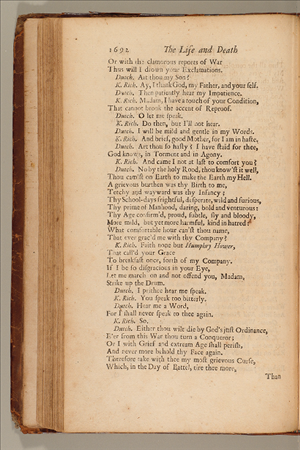 1692 The Life and Death
Or with the clamorous reports of War
Thus will I drown your Exclamations.
Dutch. Art thou my Son?
K. Rich. Ay, I thank God, my Father, and your self.
Dutch. Then patiently hear my Impatience,
K. Rich. Madam, I have a touch of your Condition,
That cannot brook the accent of Reproof.
Dutch. O let me speak.
K. Rich. Do then, but I'll not hear.
Dutch. I will be mild and gentle in my Words.
K. Rich. And brief, good Mother, for I am in haste,
Dutch. Art thou so hasty? I have staid for thee,
God knows, in Torment and in Agony.
K. Rich. And came I not at last to comfort you?
Dutch. No by the holy Rood, thou know'st it well,
Thou cam'st on Earth to make the Earth my Hell.
A grievous burthen was thy Birth to me,
Tetchy and wayward was thy Infancy:
Thy School-days frightful, desperate, wild and furious,
Thy prime of Manhood, daring, bold and venturous:
Thy Age confirm'd, proud, subtle, sly and bloody,
More mild, but yet more harmful, kind in hatred:
What comfortable hour can'st thou name,
That ever grac'd me with thy Company?
K. Rich. Faith none but Humphry Hower,
That call'd your Grace
To breakfast once, forth of my Company.
If I be so disgracious in your Eye,
Let me march on and not offend you, Madam,
Strike up the Drum.
Dutch. I prithee hear me speak.
K. Rich. You speak too bitterly.
Dutch. Hear me a Word,
For I shall never speak to thee again.
K. Rich. So.
Dutch. Either thou wilt die by God's just Ordinance,
E'er from this War thou turn a Conqueror;
Or I with Grief and extream Age shall perish,
And never more behold thy Face again.
Therefore take with thee my most grievous Curse,
Which, in the Day of Battel, tire thee more,
Than